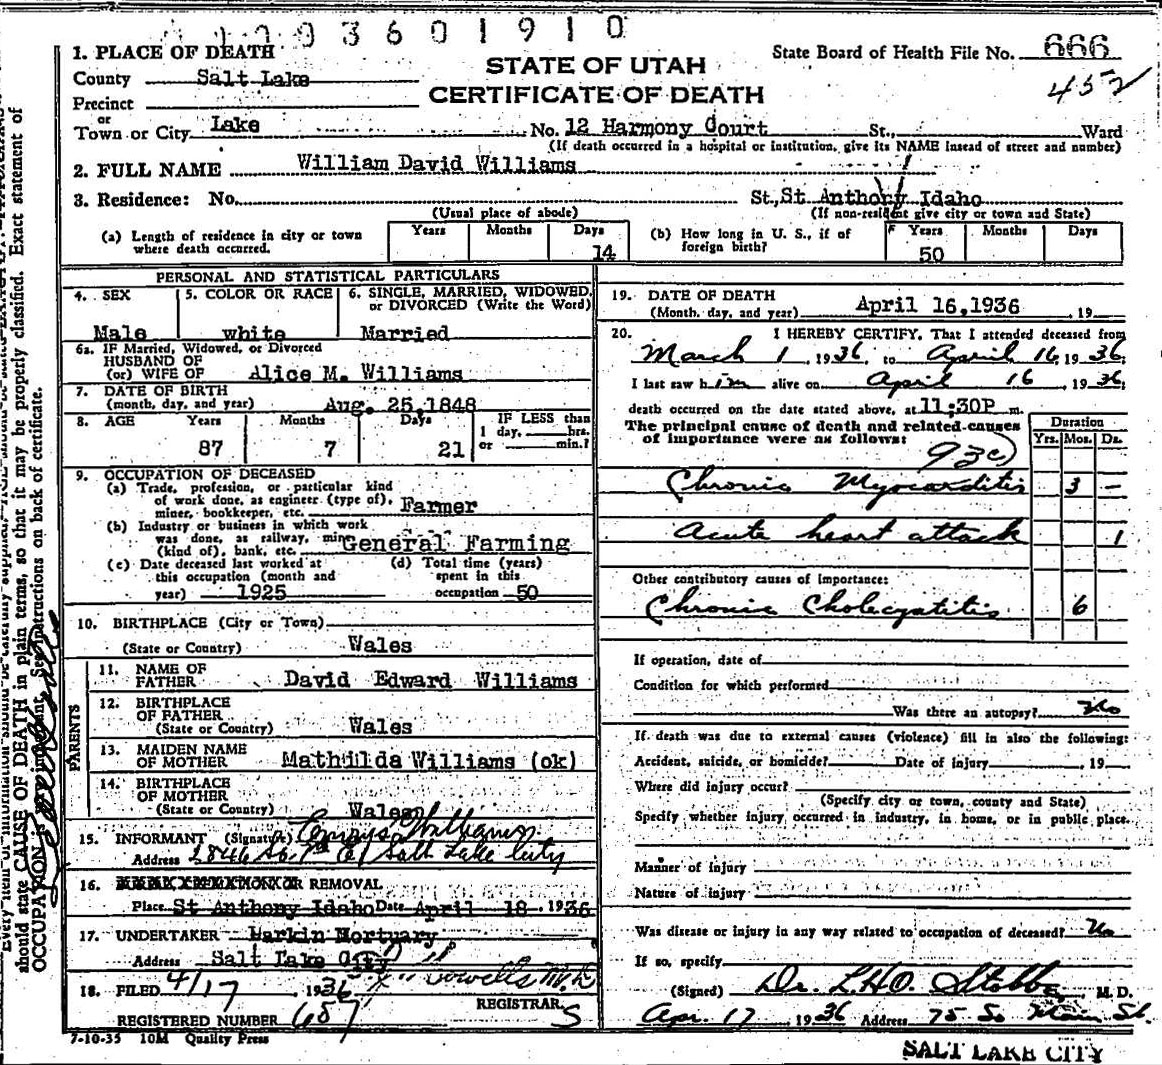 0 0 9 3 6 0 1 9 1 0
1. PLACE OF DEATH
State Board of Health File No. 666
County Salt Lake
STATE OF UTAH
452
Precinct
CERTIFICATE OF DEATH
or
Town or City Lake No. 12 Harmony Court St., Ward
(If death occurred in a hospital or institution, give its NAME instead of street and number)
2. FULL NAME William David Williams
3. Residence: No. St., St Anthony Idaho
(Usual place of abode) (If non-resident give city or town and State)
(a) Length of residence in city or town where death occurred. Years Months Days 14
(b) How long in U. S., if of foreign birth? Years 50 Months Days
PERSONAL AND STATISTICAL PARTICULARS
4. SEX Male
5. COLOR OR RACE white
6. SINGLE, MARRIED, WIDOWED, or DIVORCED (Write the Word) Married
6a. IF Married, Widowed, or Divorced
HUSBAND OF
(or) WIFE OF Alice M. Williams
7. DATE OF BIRTH
(month, day, and year) Aug. 25,1848
8. AGE Years 87 Months 7 Days 21 IF LESS than 1 day, hrs. or min.?
9. OCCUPATION OF DECEASED
(a) Trade, profession, or particular kind
of work done, as engineer (type of),
miner, bookkeeper, etc. Farmer
(b) Industry or business in which work
was done, as railway, mine
(kind of), bank, etc. General Farming
(c) Date deceased last worked at
this occupation (month and
year) 1925
(d) Total time (years)
spent in this
occupation 50
10. BIRTHPLACE (City or Town)
(State or Country) Wales
PARENTS
11. NAME OF
FATHER David Edward Williams
12. BIRTHPLACE
OF FATHER
(State or Country) Wales
13. MAIDEN NAME
OF MOTHER Mathilda Williams (ok)
14. BIRTHPLACE
OF MOTHER
(State or Country) Wales
15. INFORMANT (Signature) Williams
Address So. 7th E Salt Lake City
16. OR REMOVAL
Place St Anthony Idaho Date April 18 1936
17. UNDERTAKER Larkin Mortuary
Address Salt Lake City
18. FILED 4/17, 1936
REGISTRAR
REGISTERED NUMBER 657 S
7-10-35 10M Quality Press
19. DATE OF DEATH
(Month, day, and year) April 16,1936, 19
20. I HEREBY CERTIFY, That I attended deceased from
March 1, 1936, to April 16, 1936;
I last saw him alive on April 16, 1936;
death occurred on the date stated above, at 11:30P m.
The principal cause of death and related causes
of importance were as follows:
Duration
Yrs. Mos. Ds.
93c)
Chronic Myocarditis 3 -
Acute heart attack 1
Other contributory causes of importance:
Chronic Cholecystitis 6
If operation, date of
Condition for which performed
Was there an autopsy? No
If death was due to external causes (violence) fill in also the following:
Accident, suicide, or homicide? Date of injury, 19
Where did injury occur?
(Specify city or town, county and State)
Specify whether injury occurred in industry, in home, or in public place.
Manner of injury
Nature of injury
Was disease or injury in any way related to occupation of deceased? No
If so, specify
(Signed) Dr. L.H.O. Stobbe, M. D.
Apr. 17, 1936 Address 75 So Main St.
SALT LAKE CITY
should state CAUSE OF DEATH in plain terms, so that it may be properly classified. Exact statement of
OCCUPATION is important. See instructions on back of certificate.